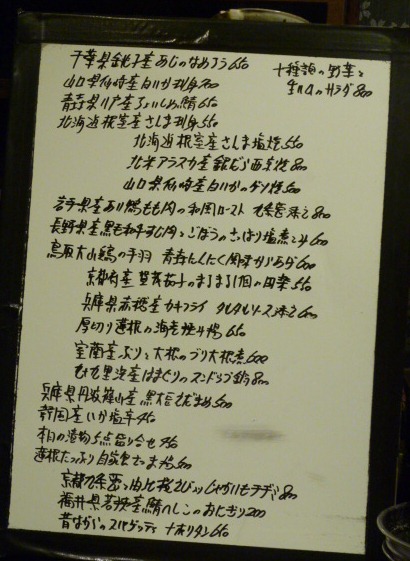 千葉県銚子産あじのなめろう 650
十種類の野菜と
生ハムのサラダ 800
山口県仙崎産白いか刺身 700
青森県八戸産ちょいしめ鯖 650
北海道根室産さんま刺身 550
北海道根室産さんま塩焼 550
北米アラスカ産銀だら西京焼 800
山口県仙崎産白いかのゲソ焼 500
岩手県産あい鴨もも肉の和風ロースト 九条葱添え 800
長野県産黒毛和牛すじ肉とごぼうのさっぱり塩煮込み 600
鳥取大山鶏の手羽 青森にんにく風味からあげ 600
京都府産 賀茂茄子のまるまる1個の田楽 550
兵庫県赤穂産カキフライ タルタルソース添え 600
厚切り蓮根の海老挟み揚 650
室蘭産ぶりと大根のブリ大根煮 600
九十九里浜産はまぐりのスンドゥブ鍋 800
兵庫県丹波篠山産 黒大豆えだまめ 500
静岡産いか塩辛 450
本日の漬物5点盛り合せ 450
蓮根たっぷり自家製さつま揚 500
京都九条葱と由比桜えびとじゃがいものチヂミ 800
福井県若狭産鯖へしこのおにぎり 200
昔ながらのスパゲッティ ナポリタン 650